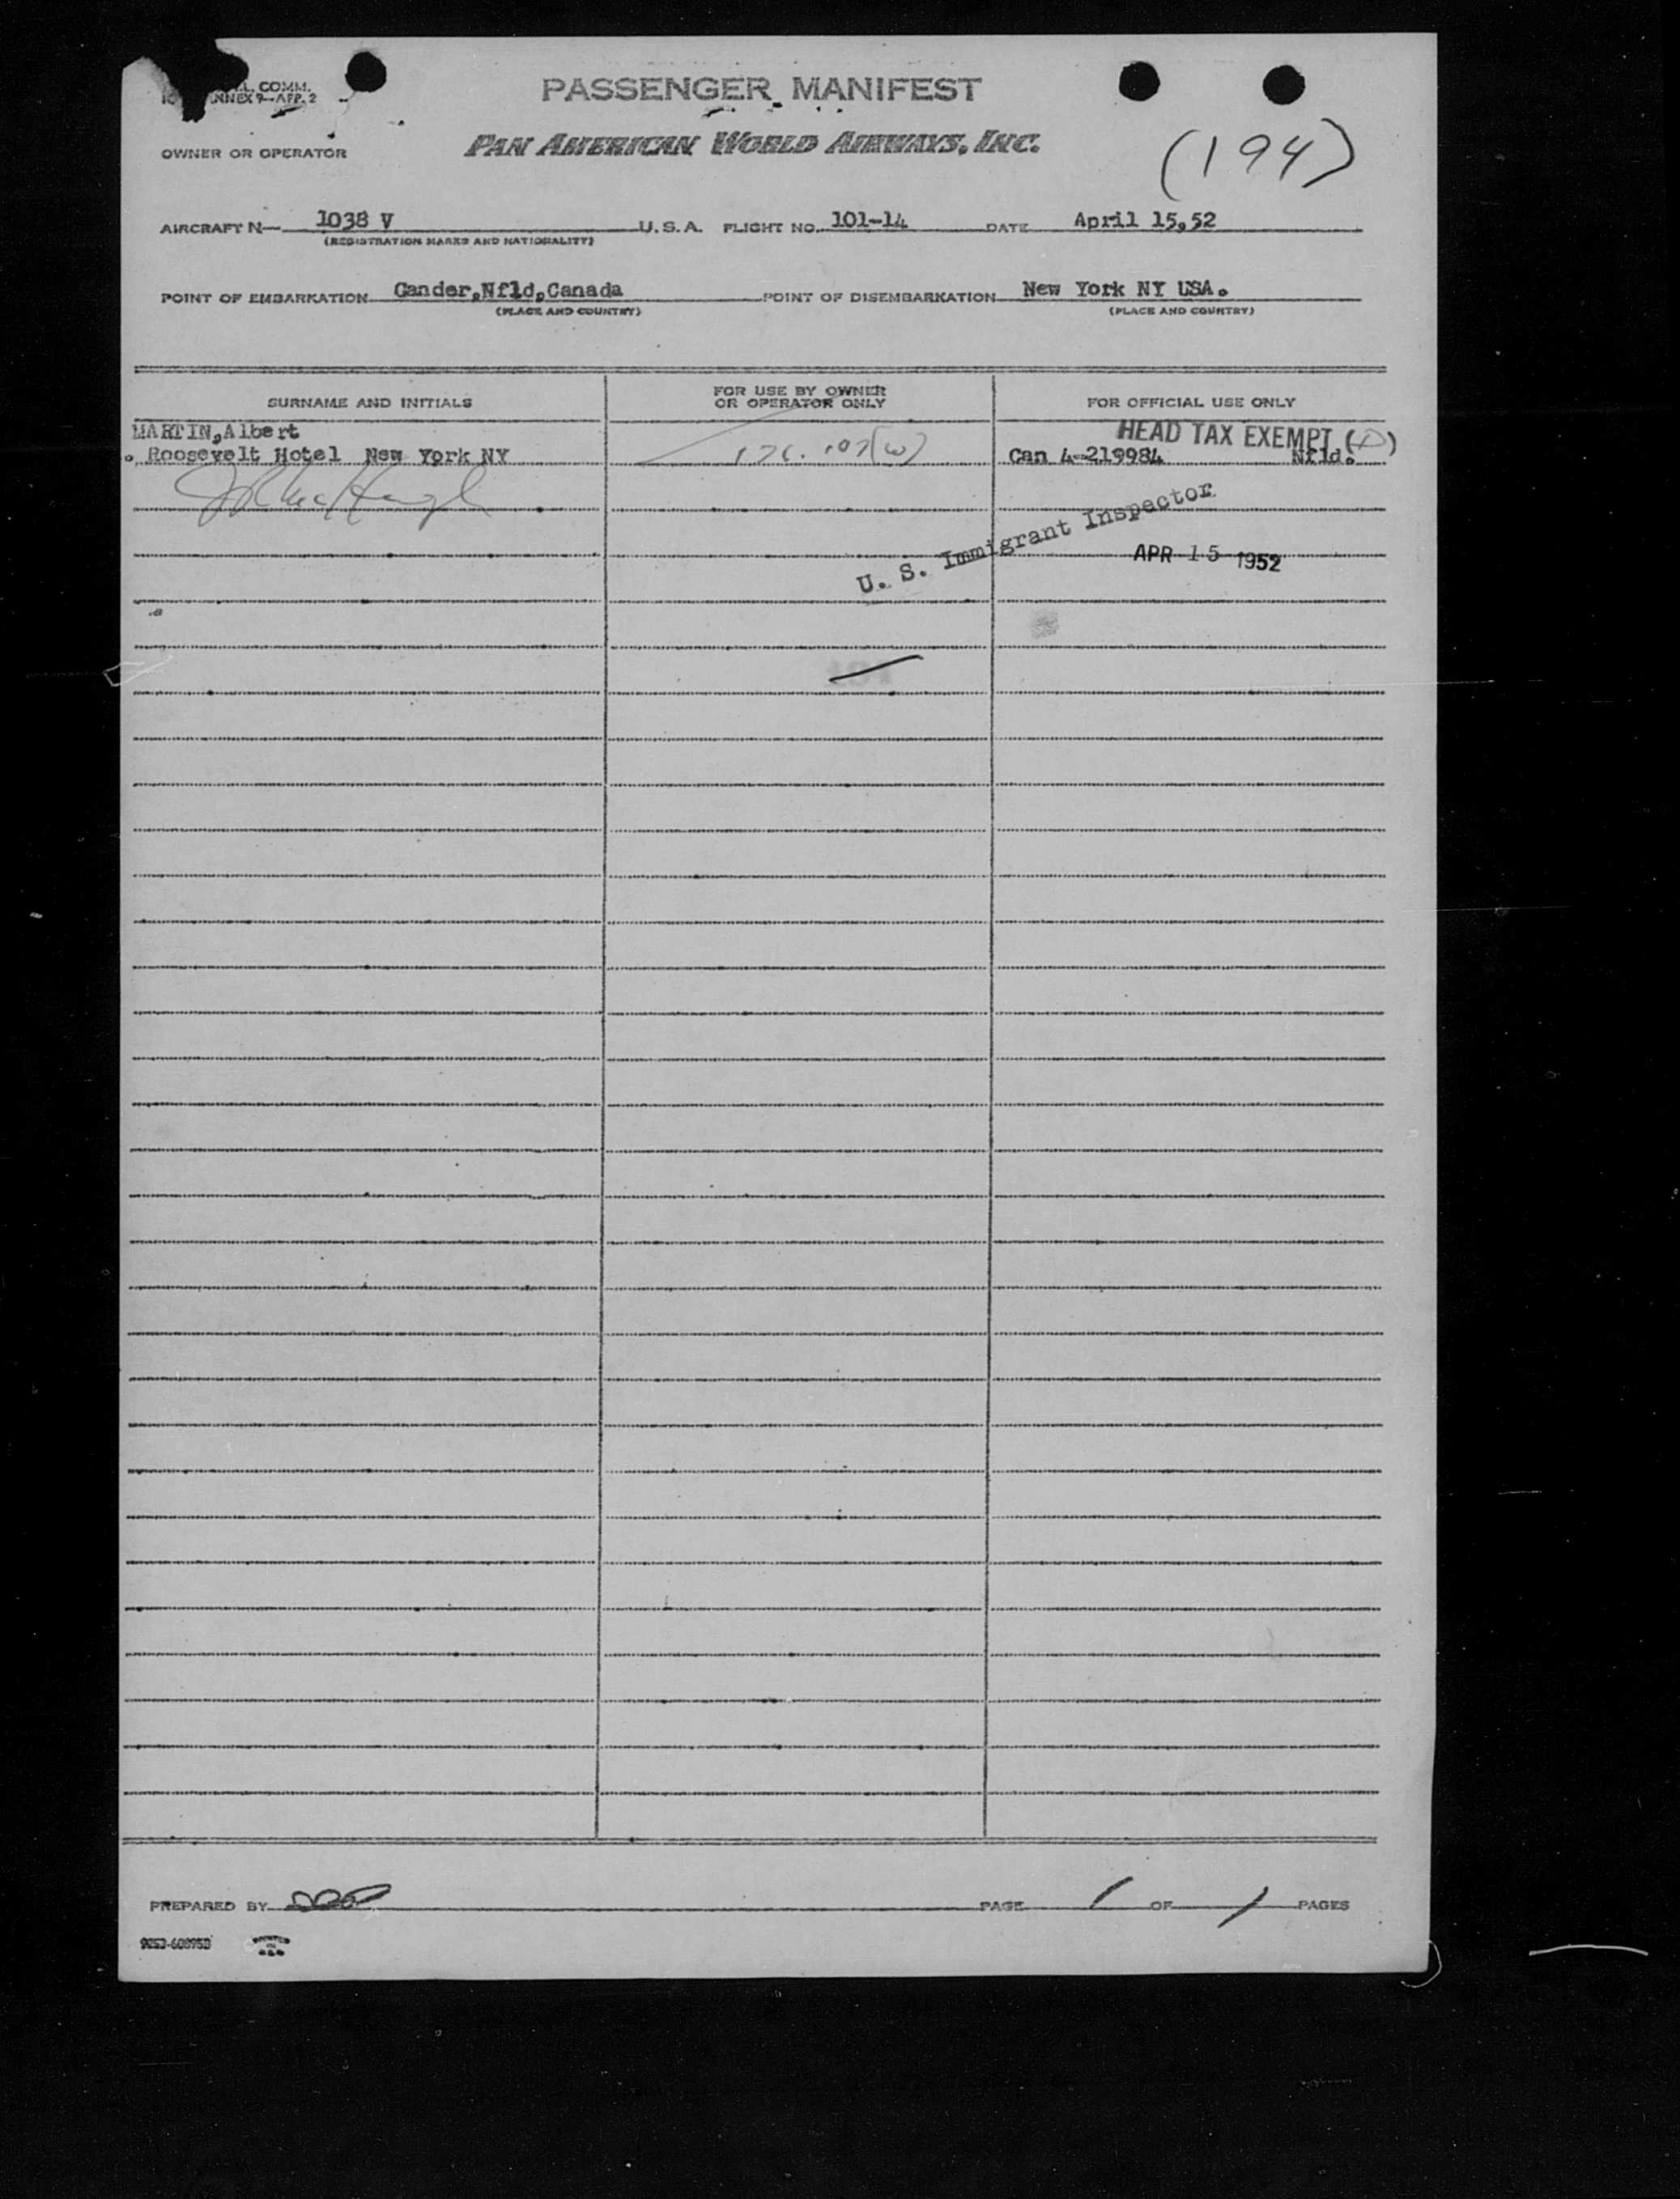 L. COMM.
ANNEX 9—APP. 2
PASSENGER MANIFEST
OWNER OR OPERATOR PAN AMERICAN WORLD AIRWAYS, INC.
(194)
AIRCRAFT N— 1038 V U.S.A. FLIGHT NO. 101-14 DATE April 15,52
(REGISTRATION MARKS AND NATIONALITY)
POINT OF EMBARKATION Gander,Nfld,Canada POINT OF DISEMBARKATION New York NY USA.
(PLACE AND COUNTRY) (PLACE AND COUNTRY)
SURNAME AND INITIALS FOR USE BY OWNER OR OPERATOR ONLY FOR OFFICIAL USE ONLY
MARTIN,Albert HEAD TAX EXEMPT
Roosevelt Hotel New York NY Can 4-219984 Nfld.
U. S. Immigrant Inspector
APR 15 1952
PREPARED BY PAGE 1 OF 1 PAGES